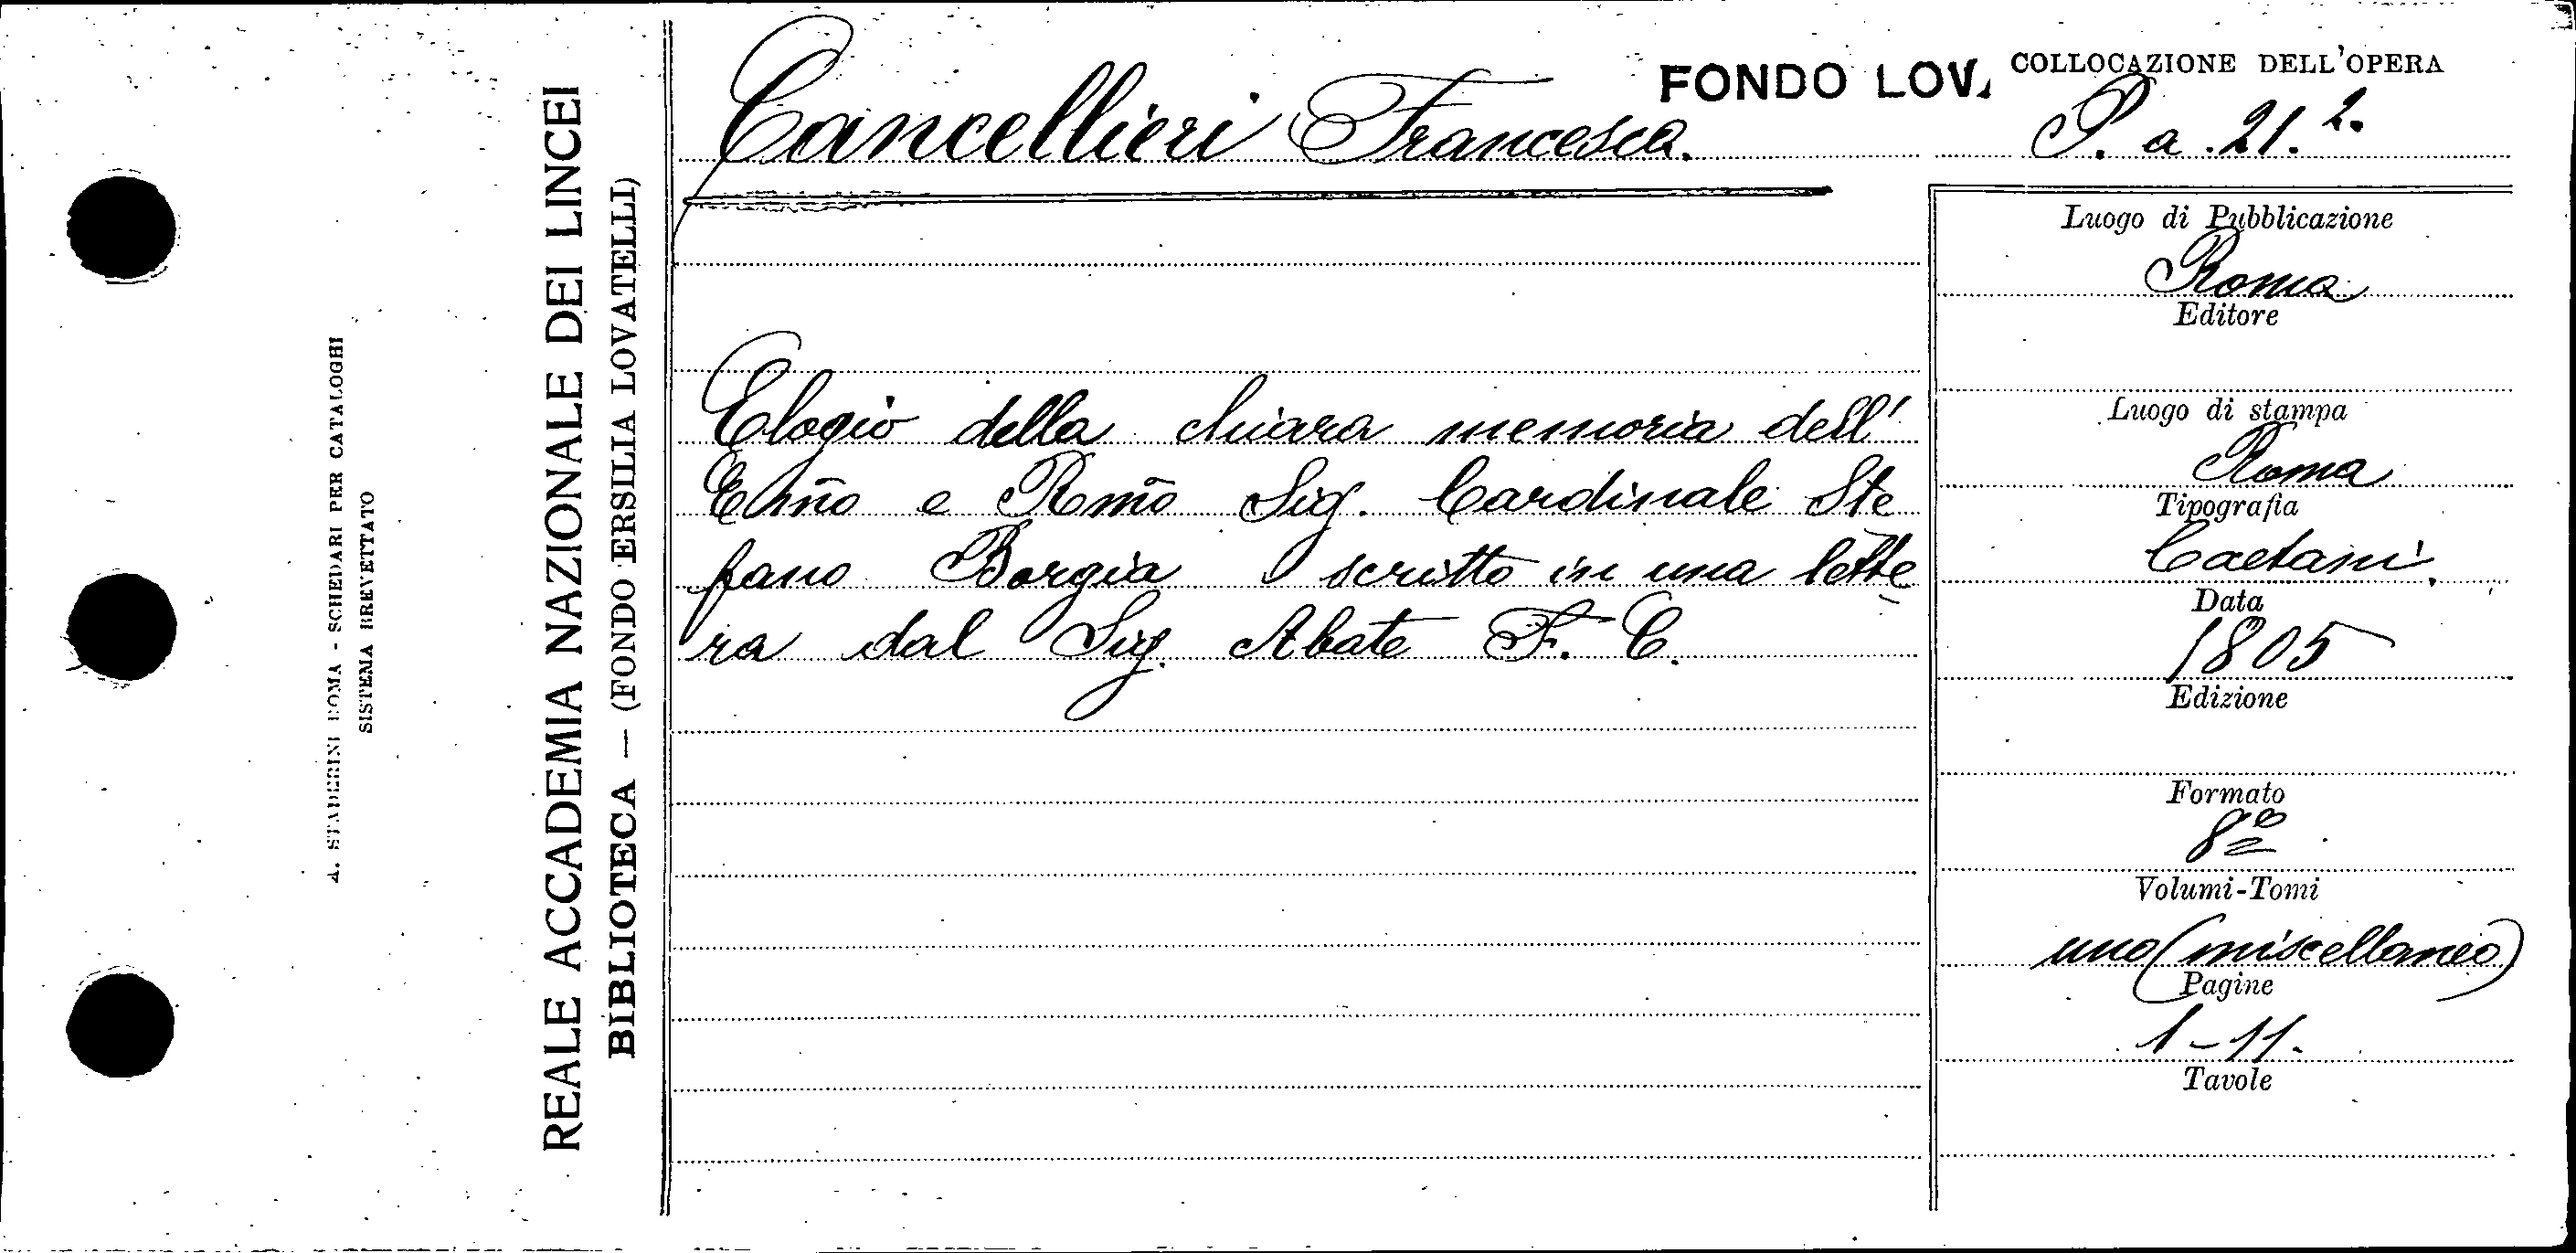 A. STADERINI ROMA - SCHEDARI PER CATALOGHI
SISTEMA BREVETTATO
REALE ACCADEMIA NAZIONALE DEI LINCEI
BIBLIOTECA — (FONDO ERSILIA LOVATELLI)
Cancellieri Francesca.
FONDO LOV.
COLLOCAZIONE DELL'OPERA
P. a. 21. 2.
Elogio della chiara memoria dell'
Emño e Rmõ Sig. Cardinale Ste
fano Borgia scritto in una lette
ra dal Sig. Abate F. C.
Luogo di Pubblicazione
Roma
Editore
Luogo di stampa
Roma
Tipografia
Caetani.
Data
1805
Edizione
Formato
8º
Volumi-Tomi
uno (miscellaneo)
Pagine
1-11.
Tavole